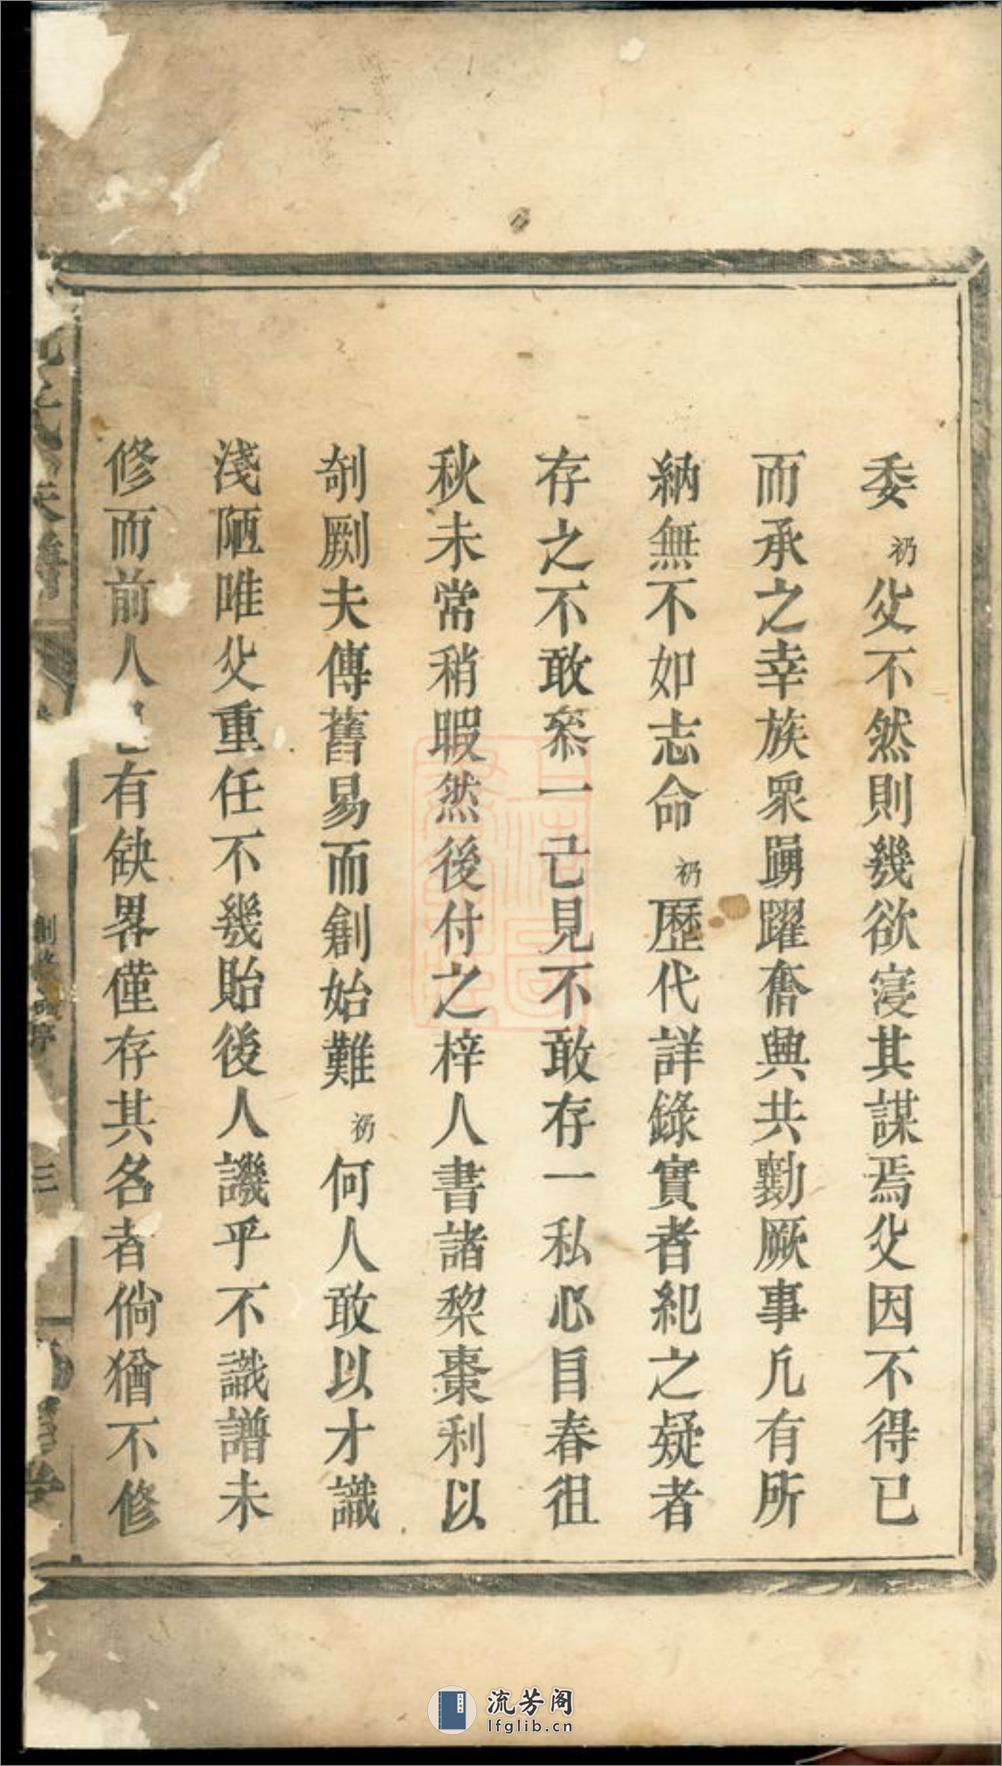 委礽父不然則幾欲寑其謀焉父因不得已
而承之幸族眾踴躍奮興共勷厥事凢有所
納無不如志命礽歷代詳錄實者紀之疑者
存之不敢叅一己見不敢存一私心目春徂
秋未常稍暇然後付之梓人書諸棃棗利以
剞劂夫傳舊易而創始難礽何人敢以才識
淺陋唯父重任不幾貽後人譏乎不識譜未
修而前人已有缺畧僅存其名者倘猶不修
氏族譜
序
三
流芳阁
lfglib.cn